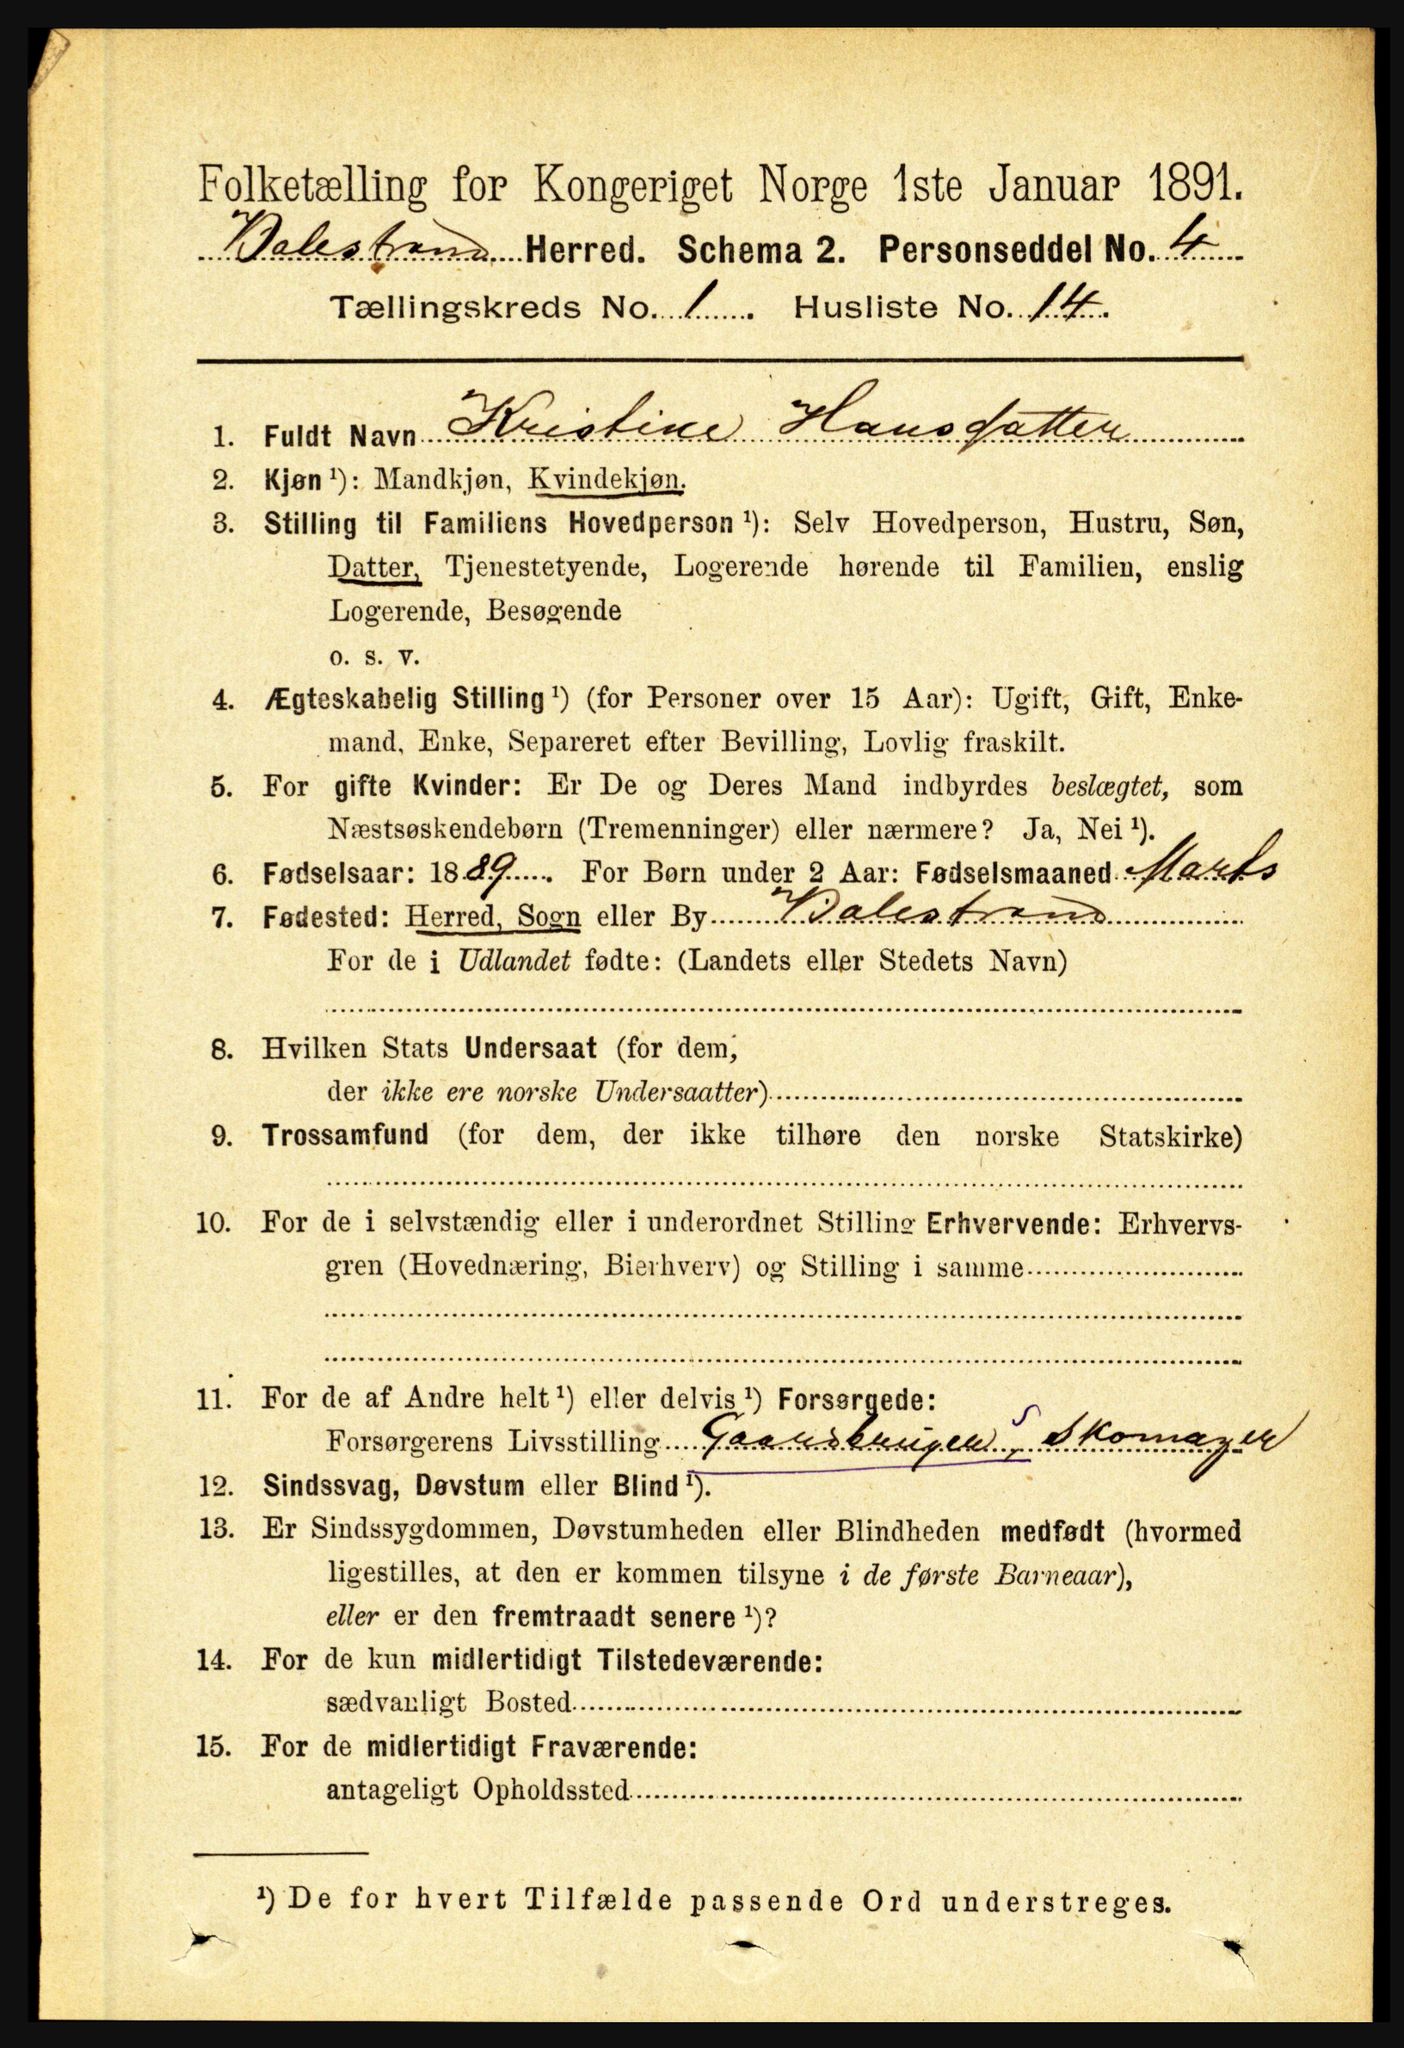 Folketælling for Kongeriget Norge 1ste Januar 1891.
Balestrand Herred. Schema 2. Personseddel No. 4
Tællingskreds No. 1. Husliste No. 14.
1. Fuldt Navn Kristine Hansdatter
2. Kjøn ¹): Mandkjøn, Kvindekjøn.
3. Stilling til Familiens Hovedperson ¹): Selv Hovedperson, Hustru, Søn,
Datter, Tjenestetyende, Logerende hørende til Familien, enslig
Logerende, Besøgende
o. s. v.
4. Ægteskabelig Stilling ¹) (for Personer over 15 Aar): Ugift, Gift, Enke-
mand, Enke, Separeret efter Bevilling, Lovlig fraskilt.
5. For gifte Kvinder: Er De og Deres Mand indbyrdes beslægtet, som
Næstsøskendebørn (Tremenninger) eller nærmere? Ja, Nei ¹).
6. Fødselsaar: 1889. For Børn under 2 Aar: Fødselsmaaned Marts
7. Fødested: Herred, Sogn eller By Balestrand
For de i Udlandet fødte: (Landets eller Stedets Navn)
8. Hvilken Stats Undersaat (for dem,
der ikke ere norske Undersaatter)
9. Trossamfund (for dem, der ikke tilhøre den norske Statskirke)
10. For de i selvstændig eller i underordnet Stilling Erhvervende: Erhvervs-
gren (Hovednæring, Bierhverv) og Stilling i samme
11. For de af Andre helt ¹) eller delvis ¹) Forsørgede:
Forsørgerens Livsstilling Gaardbruger s, Skomager
12. Sindssvag, Døvstum eller Blind ¹).
13. Er Sindssygdommen, Døvstumheden eller Blindheden medfødt (hvormed
ligestilles, at den er kommen tilsyne i de første Barneaar),
eller er den fremtraadt senere ¹)?
14. For de kun midlertidigt Tilstedeværende:
sædvanligt Bosted
15. For de midlertidigt Fraværende:
antageligt Opholdssted
¹) De for hvert Tilfælde passende Ord understreges.